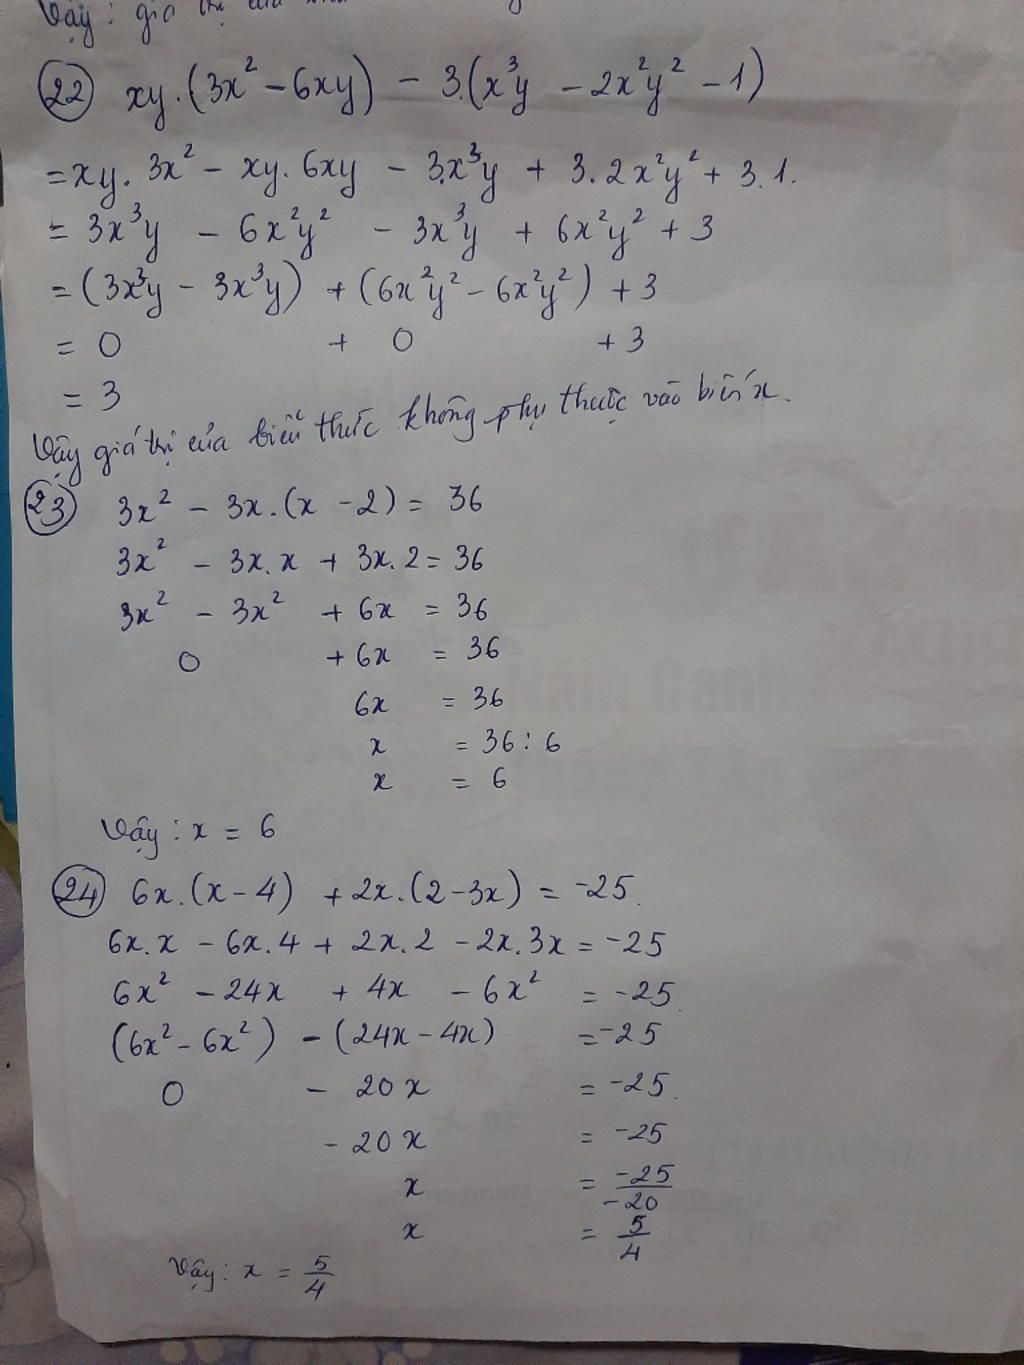 Vậy: giá trị của
22 xy.(3x² - 6xy) - 3.(x³y - 2x²y² - 1)
= xy. 3x² - xy. 6xy - 3.x³y + 3.2x²y² + 3.1.
= 3x³y - 6x²y² - 3x³y + 6x²y² + 3
= (3x³y - 3x³y) + (6x²y² - 6x²y²) + 3
= 0 + 0 + 3
= 3
Vậy giá trị của biểu thức không phụ thuộc vào biến x.
23 3x² - 3x.(x - 2) = 36
3x² - 3x.x + 3x.2 = 36
3x² - 3x² + 6x = 36
0 + 6x = 36
6x = 36
x = 36 : 6
x = 6
Vậy: x = 6
24 6x.(x - 4) + 2x.(2 - 3x) = -25.
6x.x - 6x.4 + 2x.2 - 2x.3x = -25
6x² - 24x + 4x - 6x² = -25.
(6x² - 6x²) - (24x - 4x) = -25
0 - 20x = -25.
- 20x = -25
x = -25/-20
x = 5/4
Vậy: x = 5/4